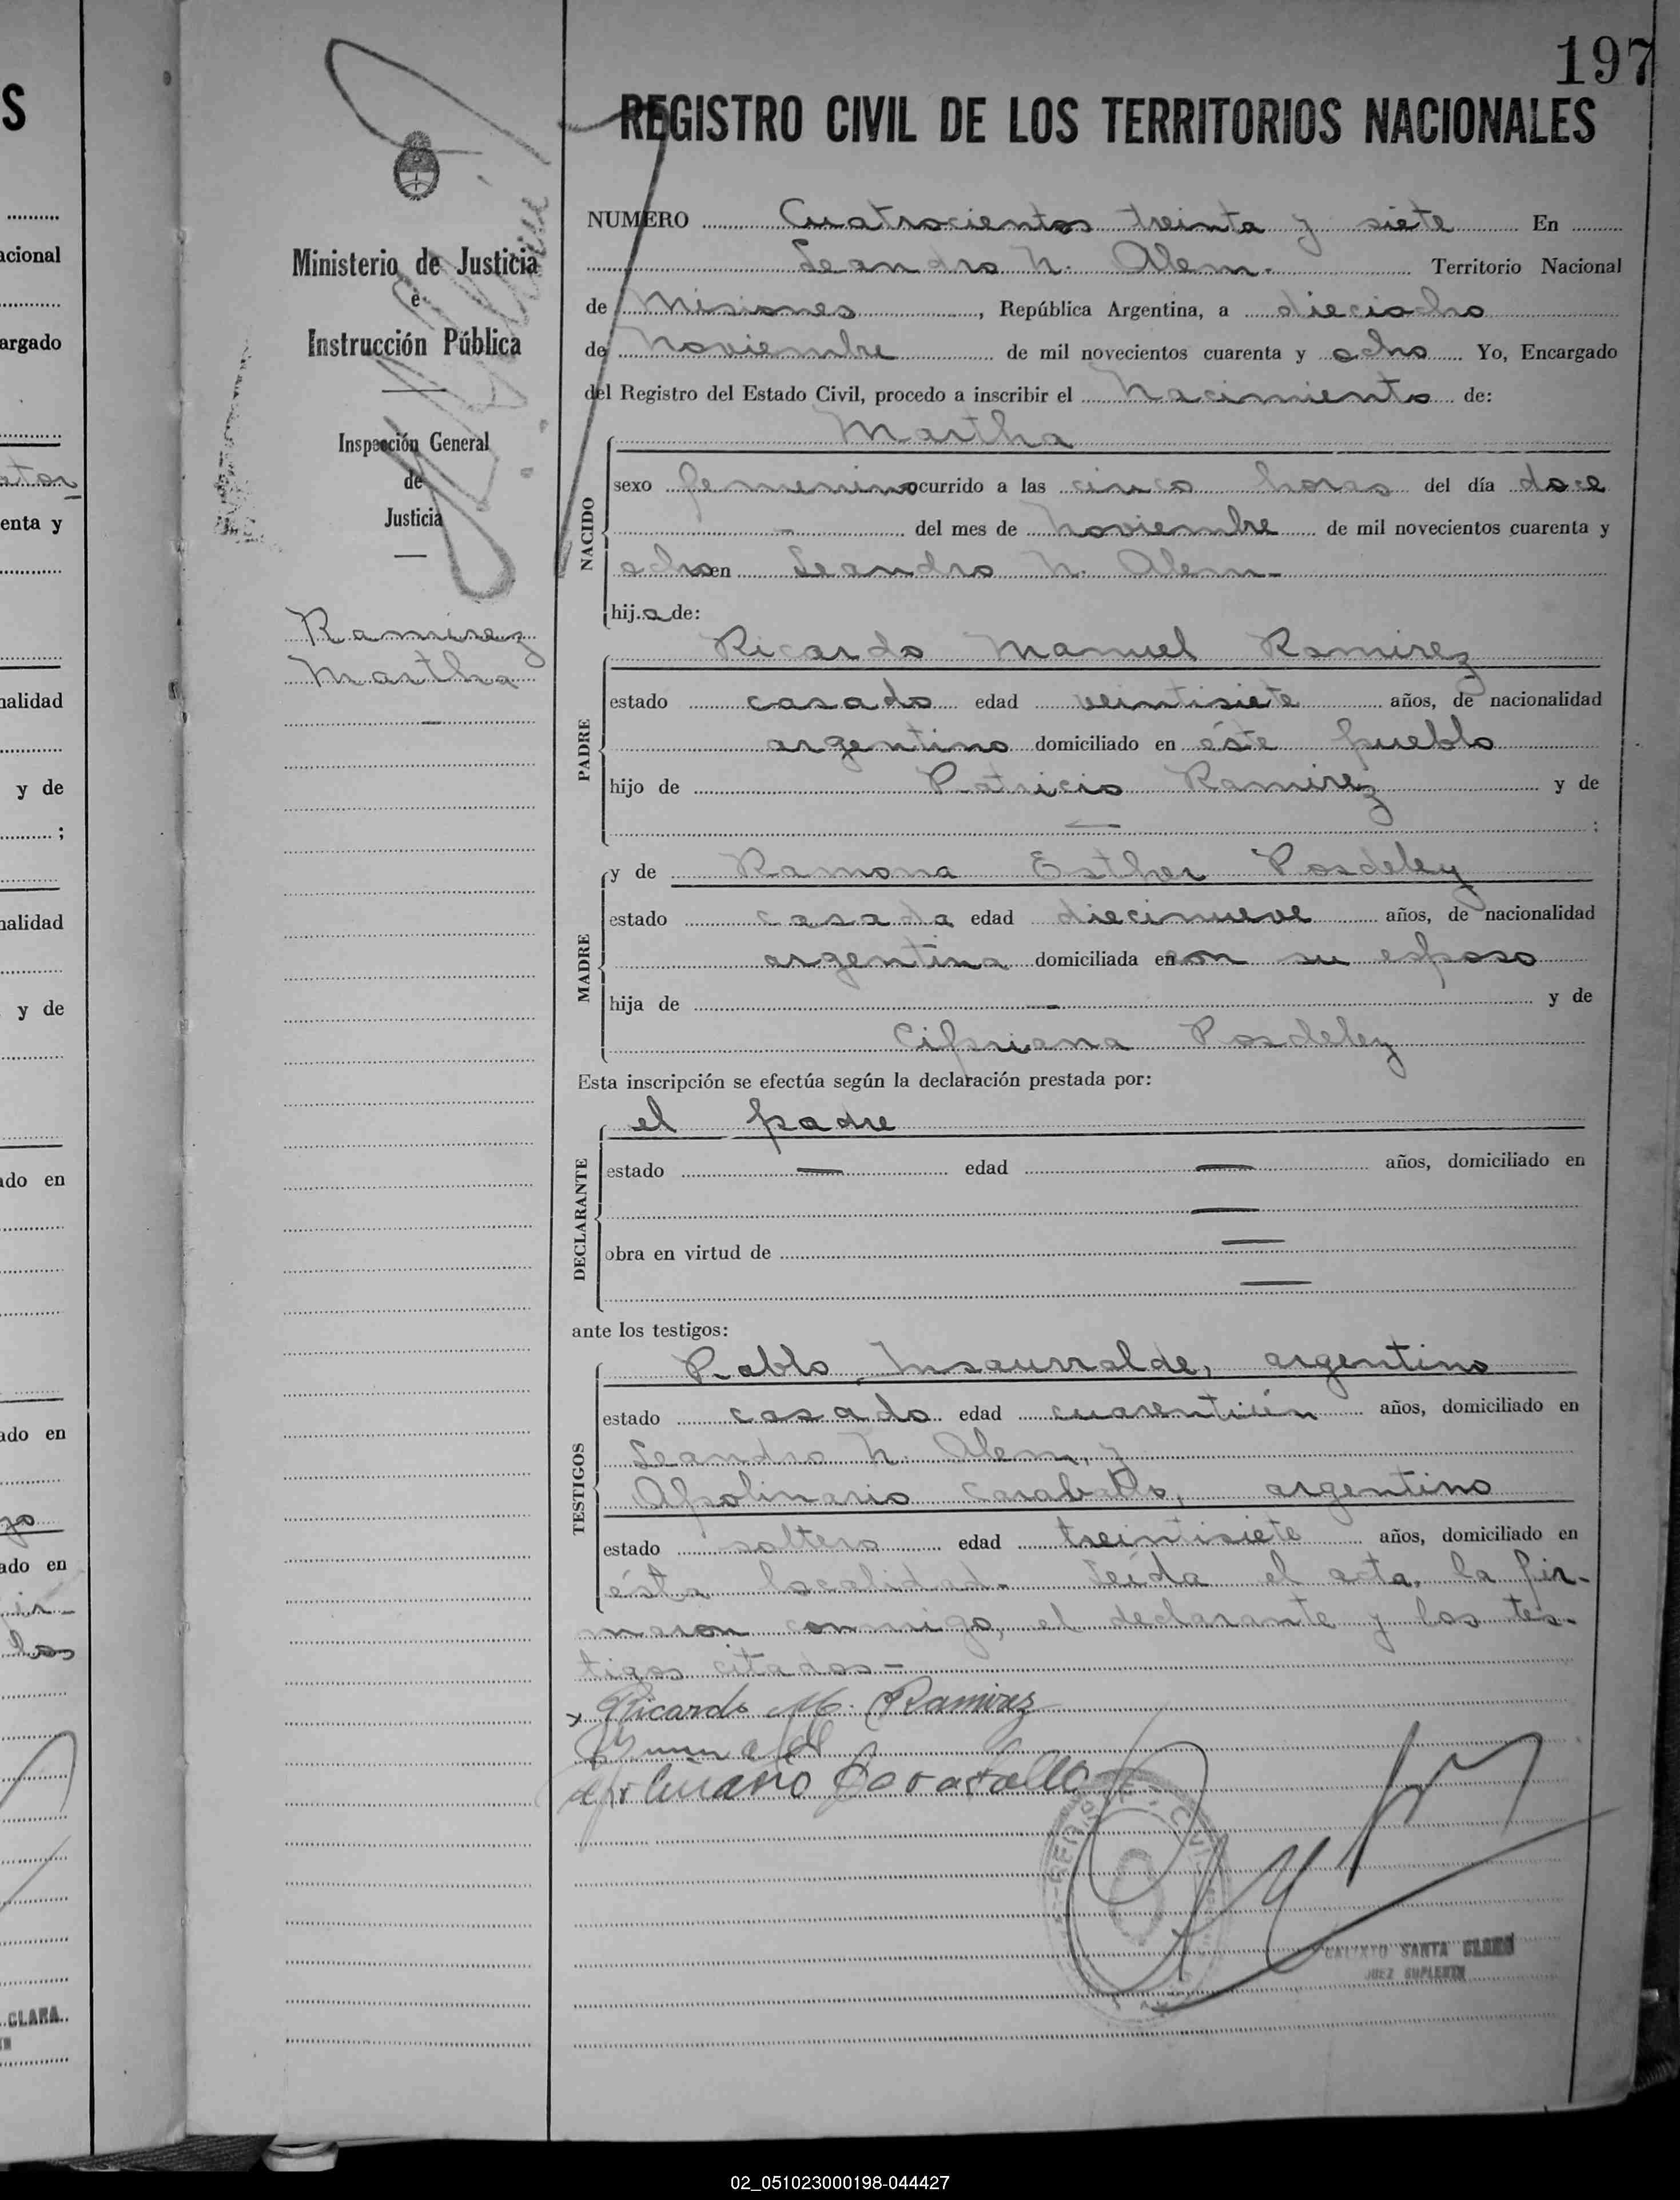 197
REGISTRO CIVIL DE LOS TERRITORIOS NACIONALES
NUMERO Cuatrocientos treinta y siete En
Leandro N. Alem. Territorio Nacional
de Misiones, República Argentina, a dieciocho
de Noviembre de mil novecientos cuarenta y ocho Yo, Encargado
del Registro del Estado Civil, procedo a inscribir el Nacimiento de:
Martha
NACIDO
sexo femenino ocurrido a las cinco horas del día doce
- del mes de Noviembre de mil novecientos cuarenta y
ocho en Leandro N. Alem-
hija de:
Ricardo Manuel Ramirez
PADRE
estado casado edad veintisiete años, de nacionalidad
argentino domiciliado en éste pueblo
hijo de Patricio Ramirez y de
— ;
y de Ramona Esther Posdeley
MADRE
estado casada edad diecinueve años, de nacionalidad
argentina domiciliada en con su esposo
hija de - y de
Cipriana Posdeley
Esta inscripción se efectúa según la declaración prestada por:
el padre
DECLARANTE
estado — edad — años, domiciliado en
—
obra en virtud de —
—
ante los testigos:
Pablo Insaurralde, argentino
TESTIGOS
estado casado edad cuarentiún años, domiciliado en
Leandro N. Alem, y
Apolinario Caraballo, argentino
estado soltero edad treintisiete años, domiciliado en
ésta localidad. Leída el acta, la fir-
maron conmigo, el declarante y los tes-
tigos citados-
Ricardo M. Ramirez
Apolinario Caraballo
REGISTRO CIVIL
CALIXTO SANTA CLARA
JUEZ SUPLENTE
Ministerio de Justicia
è
Instrucción Pública
Inspección General
de
Justicia
Ramirez
Martha
-
S
acional
argado
enta y
nalidad
y de
;
nalidad
y de
ado en
ado en
ado en
CLARA
02_051023000198-044427